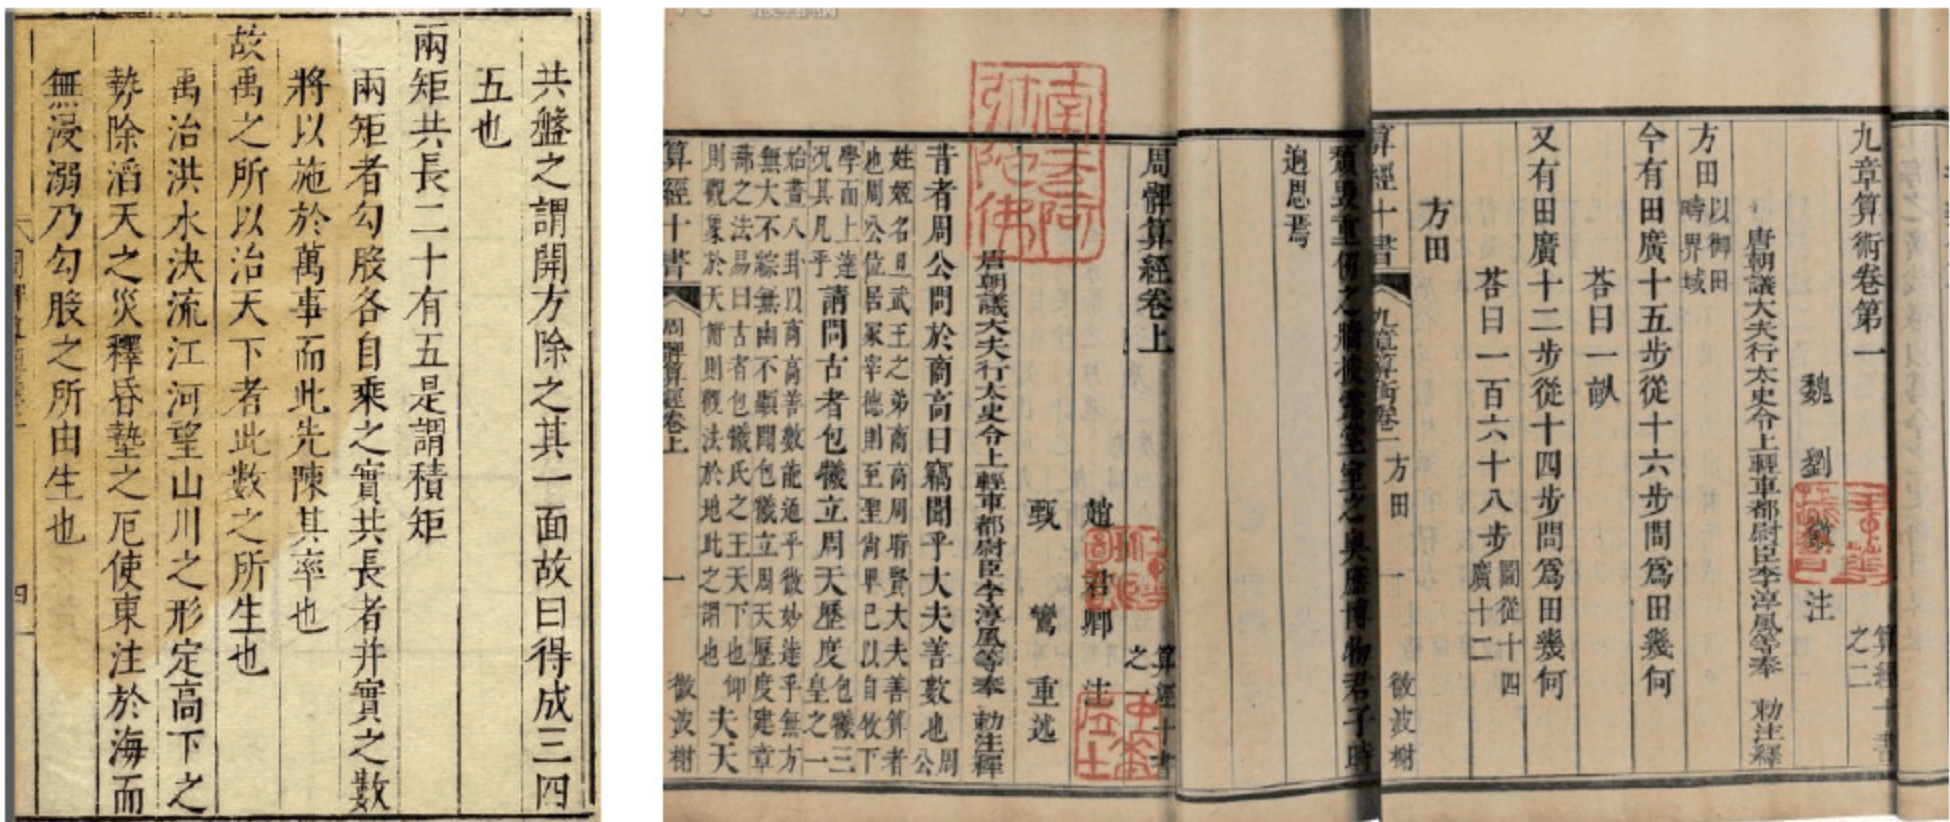 共盤之謂開方除之其一面故曰得成三四
五也
兩矩共長二十有五是謂積矩
兩矩者勾股各自乘之實共長者并實之數
將以施於萬事而此先陳其率也
故禹之所以治天下者此数之所生也
禹治洪水决流江河望山川之形定高下之
勢除滔天之災釋昏墊之厄使東注於海而
無浸溺乃勾股之所由生也
四
九章算術卷第一
算經十書
之二
魏 劉 徽 注
唐朝議大夫行太史令上輕車都尉臣李淳風等奉 勅注釋
方田
以御田
疇界域
今有田廣十五步從十六步問爲田幾何
荅曰一畝
又有田廣十二步從十四步問爲田幾何
荅曰一百六十八步
圖從十四
廣十二
方田
算經十書
九章算術卷一 方田
一
微波榭
頹毀重仞之牆披露堂室之奥庶博物君子時
迥思焉
周髀算經卷上
算經十書
之一
趙 君卿 注
甄 鸞 重述
唐朝議大夫行太史令上輕車都尉臣李淳風等奉 勅注釋
南无阿弥陀佛
昔者周公問於商高曰竊聞乎大夫善數也
周
公
姓姬名旦武王之弟商高周時賢大夫善算者
也周公位居冢宰德則至聖尚卑己以自牧下
學而上達
况其凡乎
請問古者包犧立周天歷度
包犧三
皇之一
始畫八卦以商高善數能通乎微妙達乎無方
無大不綜無由不顯聞包犧立周天歷度建章
蔀之法易曰古者包犧氏之王天下也仰
則觀象於天俯則觀法於地此之謂也
夫天
算經十書
周髀算經卷上
一
微波榭